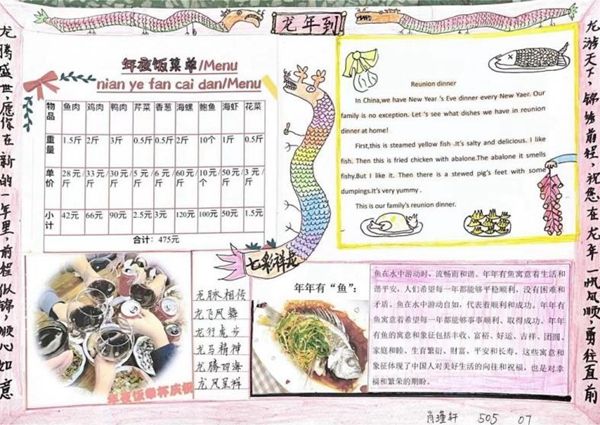 龙年到
龙腾盛世应像在新的一年里,前程似锦,顺心如意
年夜饭菜单/Menu
nian ye fan cai dan/Menu
物品 鱼肉 鸡肉 鸭肉 芹菜 香葱 海螺 鲍鱼 海虾 花菜
重量 1.5斤 2斤 3斤 0.5斤 0.5斤 2斤 10个 1斤 0.5斤
单价 28元/斤 33元/斤 30元/斤 5元/斤 6元/斤 60元/斤 10元/个 50元/斤 3元/斤
小计 42元 66元 90元 2.5元 3元 120元 100元 50元 1.5元
合计:475元
Reunion dinner
In China,we have New Year 's Eve dinner every New Yaer. Our
family is no exception. Let 's see what dishes we have in reunion
dinner at home!
First,this is steamed yellow fish .It's salty and delicious. I like
fish. Then this is fried chicken with abalone.The abalone it smells
fishy.But I like it. Then there is a stewed pig's feet with some
dumpings.It's very yummy .
This is our family's reunion dinner.
龙游天下,锦绣前程,祝您在龙年一帆风顺,勇往直前
七彩祥龙
年夜饭举杯庆祝
龙脉相传
龙飞凤舞
龙行虎步
龙马精神
龙腾四海
龙凤呈祥
年年有“鱼”:
鱼在水中游动时,流畅而和谐。年年有鱼寓意着生活和
谐平安,人们希望每一年都能够平稳顺利,没有困难和
矛盾。鱼在水中游动自如,代表着顺利和成功。年年有
鱼寓意着希望每一年都能够事事顺利、取得成功。年年
有鱼的寓意和象征包括丰收、富裕、好运、吉祥、团圆、
家庭和睦、生育繁衍、财富、平安和长寿。这些寓意和
象征体现了中国人对美好生活的向往和祝福,也是对幸
福和繁荣的期盼。
肖瑾轩 505 07